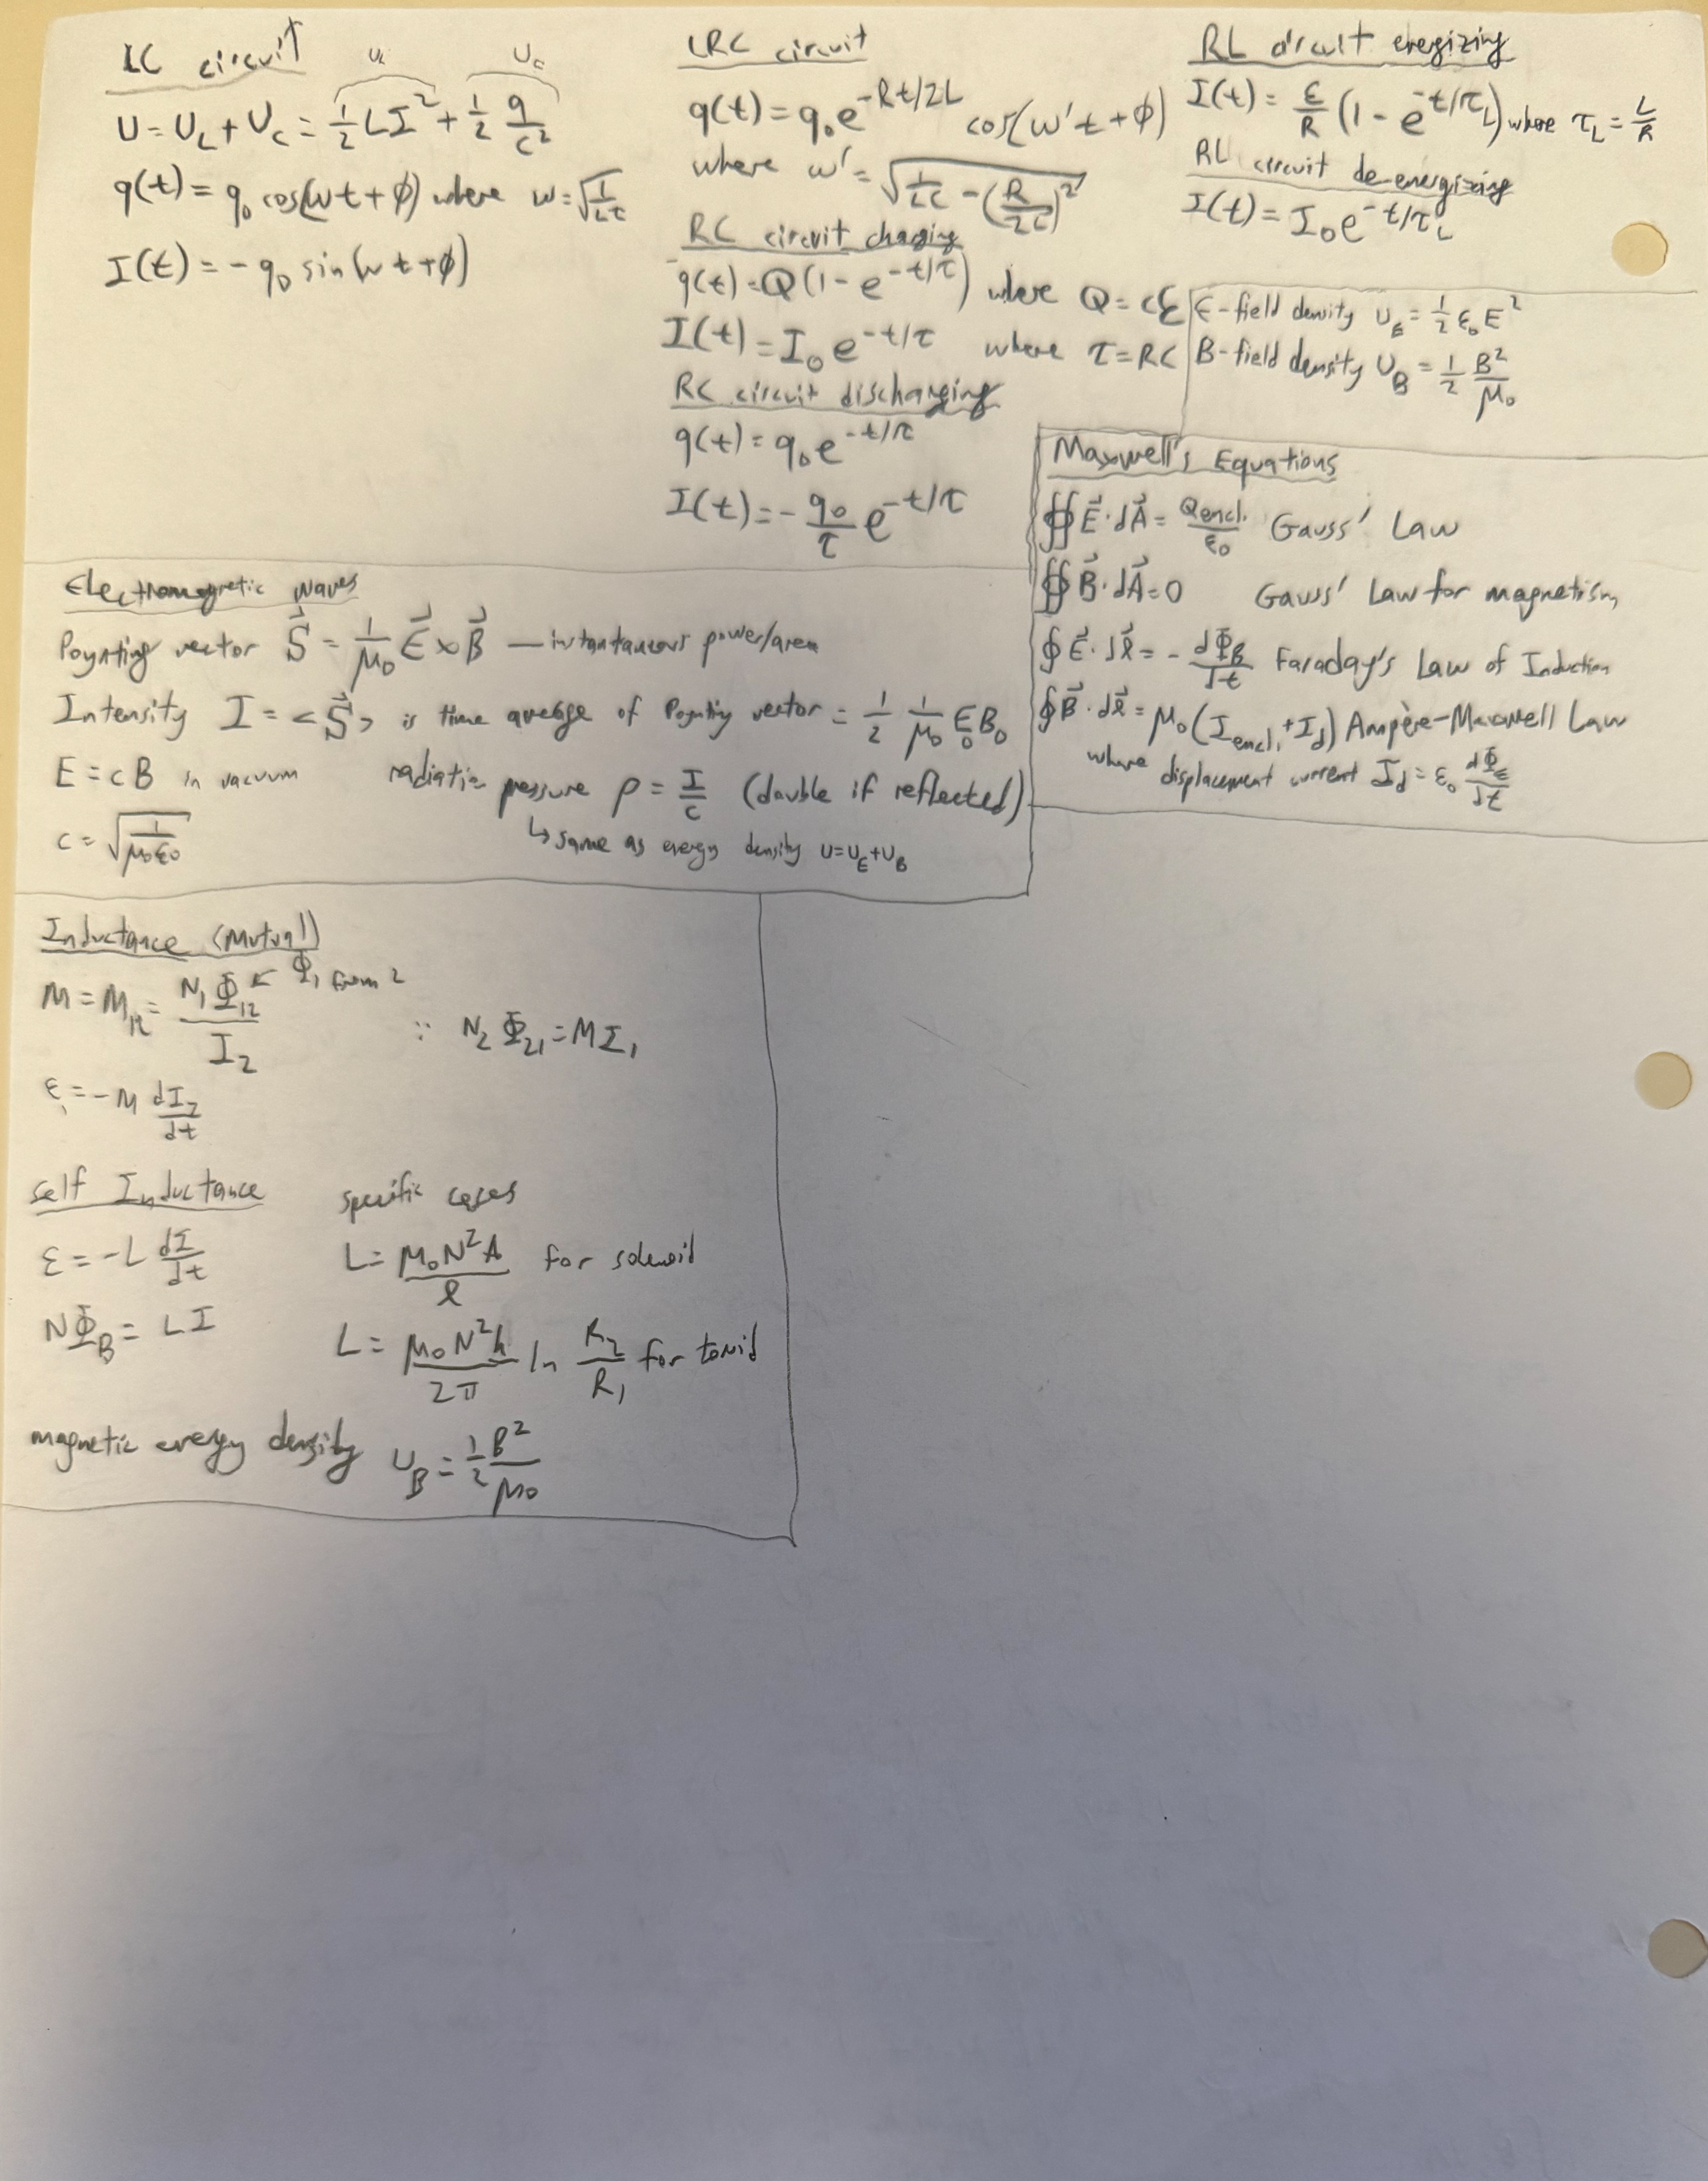 LC circuit
U_L U_C
U = U_L + U_C = 1/2 LI^2 + 1/2 q/C^2
q(t) = q_0 cos(ωt + ϕ) where ω = √(1/LC)
I(t) = - q_0 sin(ωt + ϕ)
LRC circuit
q(t) = q_0 e^{-Rt/2L} cos(ω't + ϕ)
where ω' = √(1/LC - (R/2L)^2)
RC circuit charging
q(t) = Q(1 - e^{-t/τ}) where Q = Cℰ
I(t) = I_0 e^{-t/τ} where τ = RC
RC circuit discharging
q(t) = q_0 e^{-t/τ}
I(t) = - q_0/τ e^{-t/τ}
RL circuit energizing
I(t) = ℰ/R (1 - e^{-t/τ_L}) where τ_L = L/R
RL circuit de-energizing
I(t) = I_0 e^{-t/τ_L}
E-field density U_E = 1/2 ε_0 E^2
B-field density U_B = 1/2 B^2/μ_0
Maxwell's Equations
∯ E⃗ · dA⃗ = Q_encl./ε_0 Gauss' Law
∯ B⃗ · dA⃗ = 0 Gauss' Law for magnetism
∮ E⃗ · dℓ⃗ = - dΦ_B/dt Faraday's Law of Induction
∮ B⃗ · dℓ⃗ = μ_0 (I_encl. + I_d) Ampère-Maxwell Law
where displacement current I_d = ε_0 dΦ_E/dt
Electromagnetic waves
Poynting vector S⃗ = 1/μ_0 E⃗ × B⃗ — instantaneous power/area
Intensity I = <S⃗> is time average of Poynting vector = 1/2 1/μ_0 E_0 B_0
E = cB in vacuum
radiation pressure P = I/c (double if reflected)
↳ same as energy density U = U_E + U_B
c = √(1/μ_0ε_0)
Inductance (Mutual)
M = M_12 = N_1 Φ_12 / I_2 ← Φ_1 from 2
∵ N_2 Φ_21 = M I_1
ℰ_1 = - M dI_2/dt
self Inductance
ℰ = - L dI/dt
NΦ_B = LI
specific cases
L = μ_0 N^2 A / ℓ for solenoid
L = μ_0 N^2 h / 2π ln R_2/R_1 for toroid
magnetic energy density U_B = 1/2 B^2/μ_0